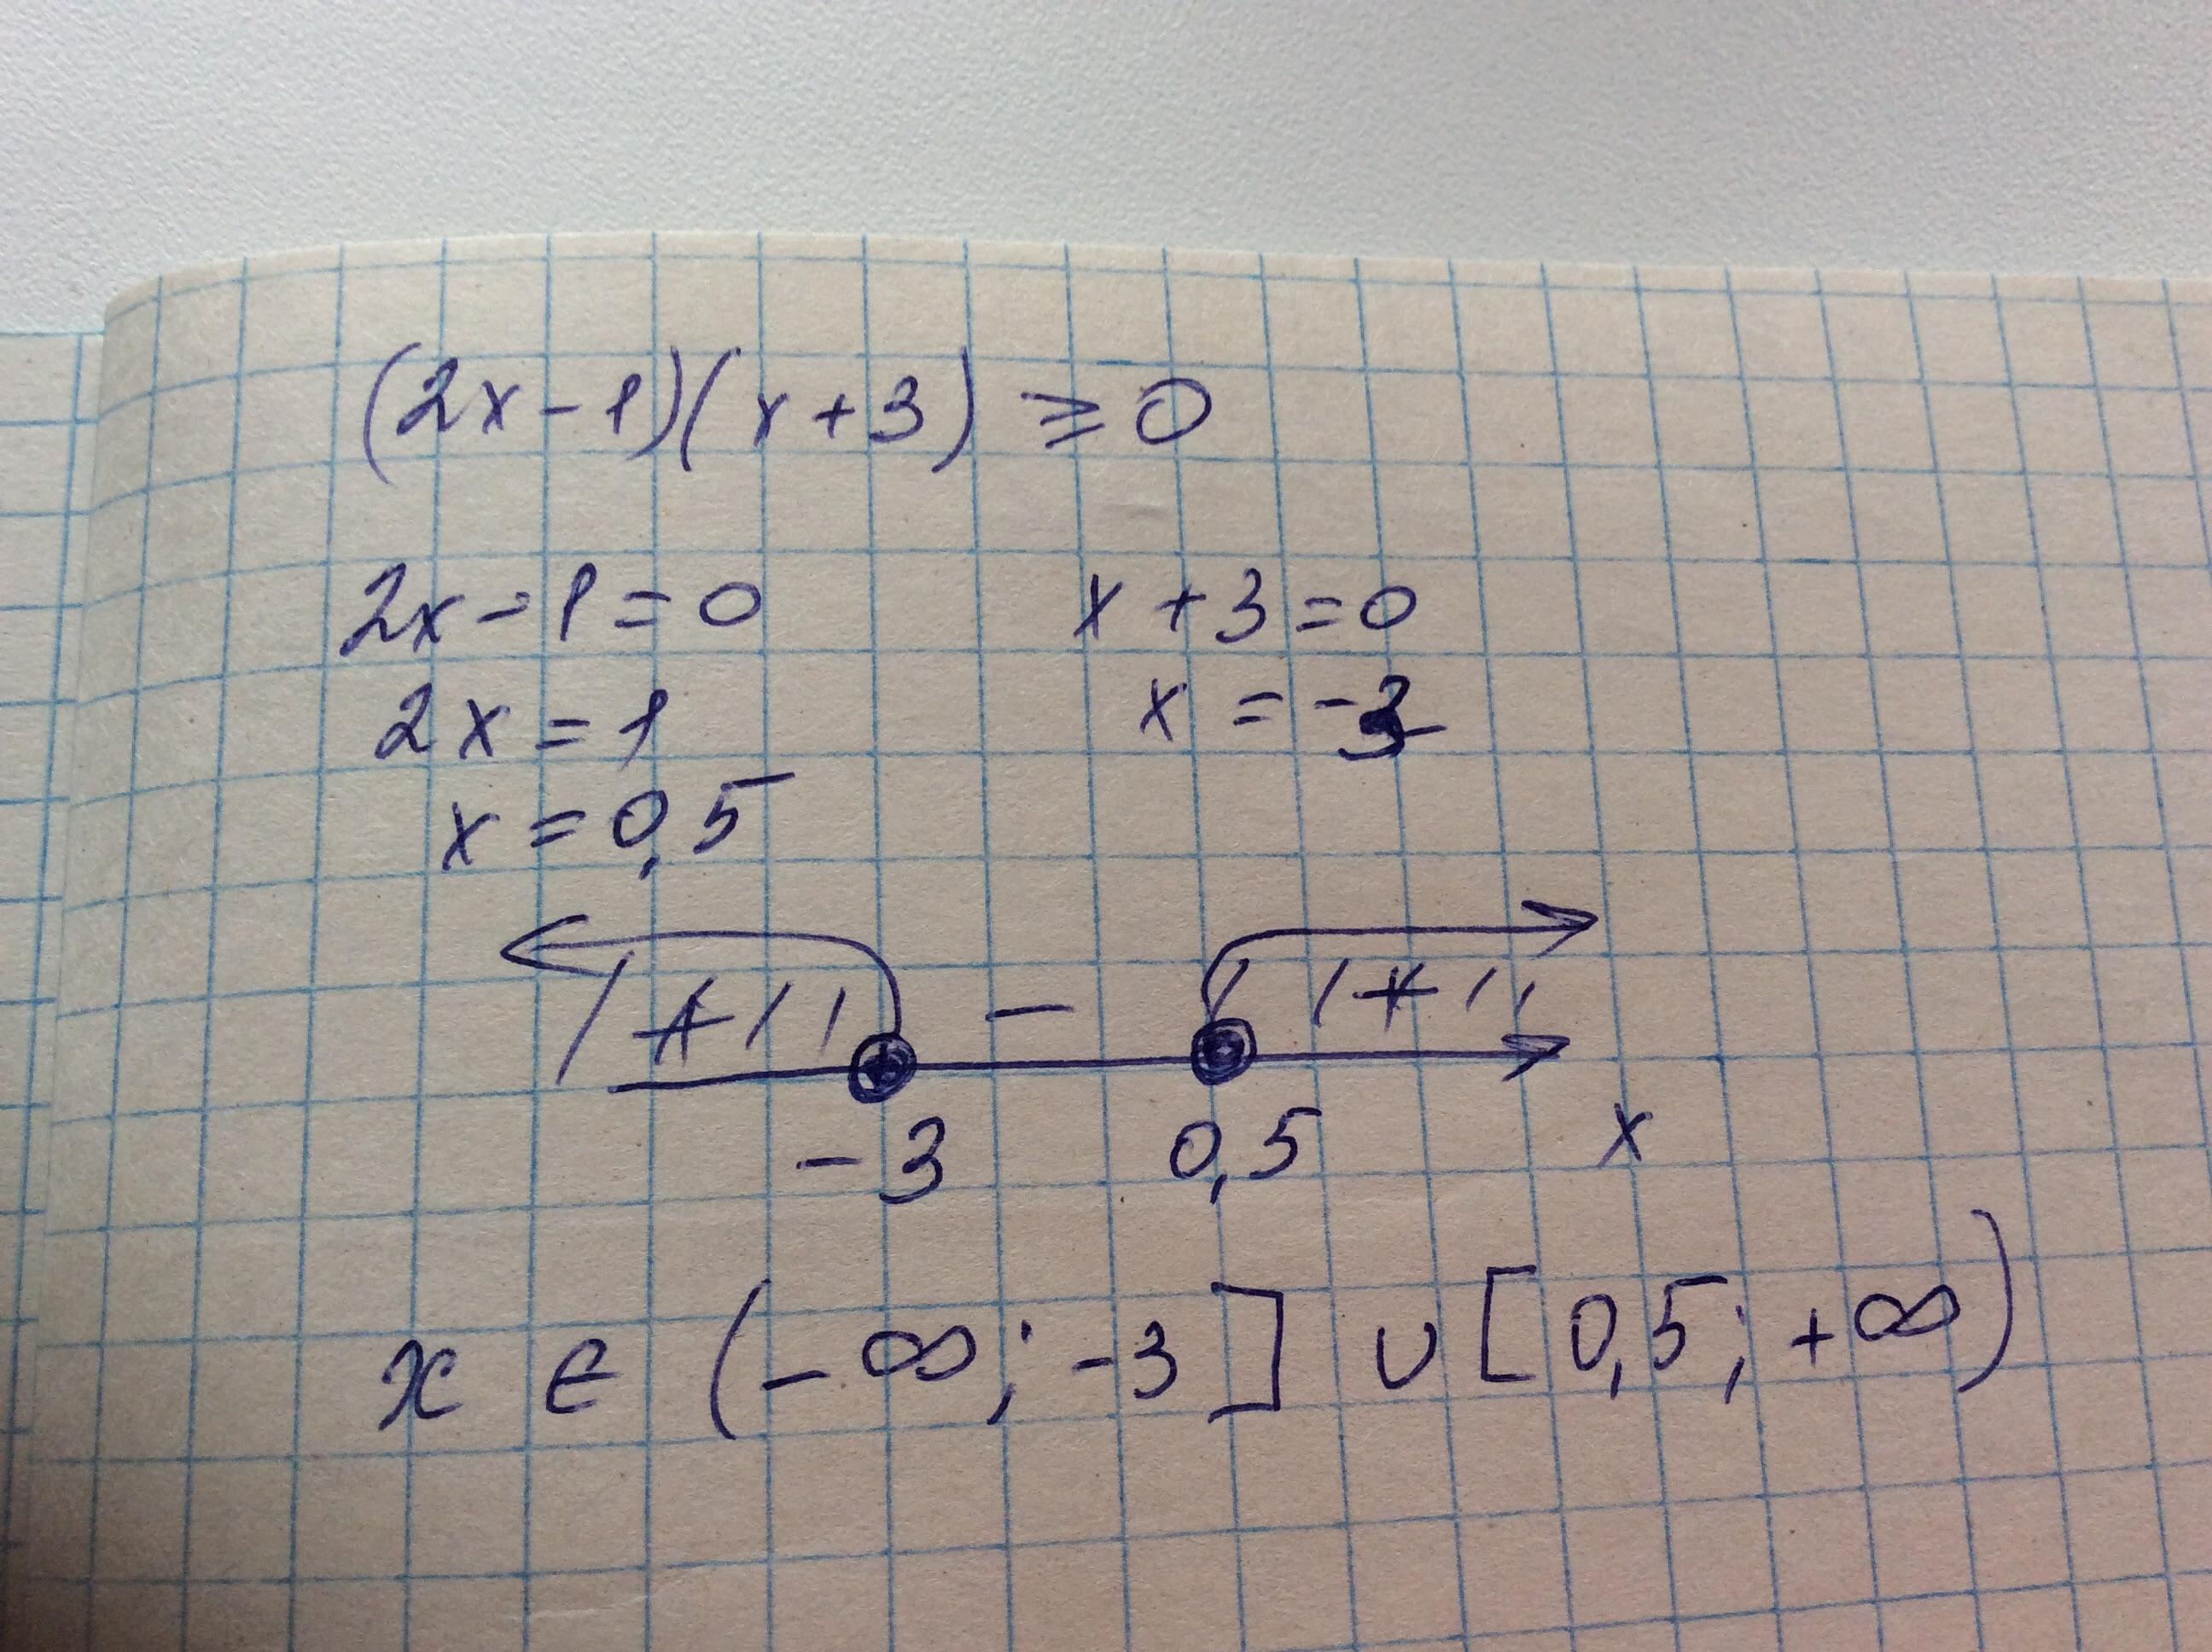 (2x-1)(x+3) ≥ 0
2x-1=0 x+3=0
2x=1 x=-3
x=0,5
+ - +
-3 0,5 x
x ∈ (-∞; -3] ∪ [0,5; +∞)